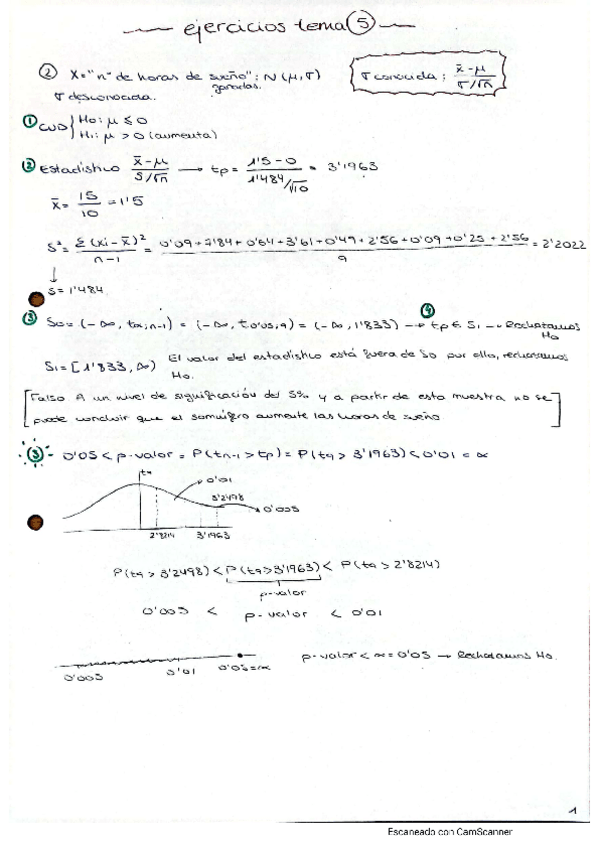 ejercicios tema 5
② X = "nº de horas de sueño ganadas" : N(μ, σ)
σ desconocida.
σ conocida; x̄-μ / σ/√n
① CUD { H0: μ ≤ 0
H1: μ > 0 (aumenta)
② Estadístico x̄-μ / S/√n → tp = 1'5 - 0 / 1'484/√10 = 3'1963
x̄ = 15/10 = 1'5
S² = Σ(xi - x̄)² / n-1 = 0'09 + 7'84 + 0'64 + 3'61 + 0'49 + 2'56 + 0'09 + 0'25 + 2'56 / 9 = 2'2022
↓
S = 1'484
③ S0 = (-∞, tα, n-1) = (-∞, t0'05, 9) = (-∞, 1'833) → ④ tp ∈ S1 → Rechazamos H0
S1 = [1'833, ∞) El valor del estadístico está fuera de S0 por ello, rechazamos
H0.
[Falso A un nivel de significación del 5% y a partir de esta muestra no se
puede concluir que el somnífero aumente las horas de sueño]
③ 0'05 < p-valor = P(tn-1 > tp) = P(t9 > 3'1963) < 0'01 = α
t9
0'01
3'2498
0'005
2'8214 3'1963
P(t9 > 3'2498) < P(t9 > 3'1963) < P(t9 > 2'8214)
p-valor
0'005 < p-valor < 0'01
0'005 0'01 0'05=α
p-valor < α = 0'05 → Rechazamos H0.
1
Escaneado con CamScanner